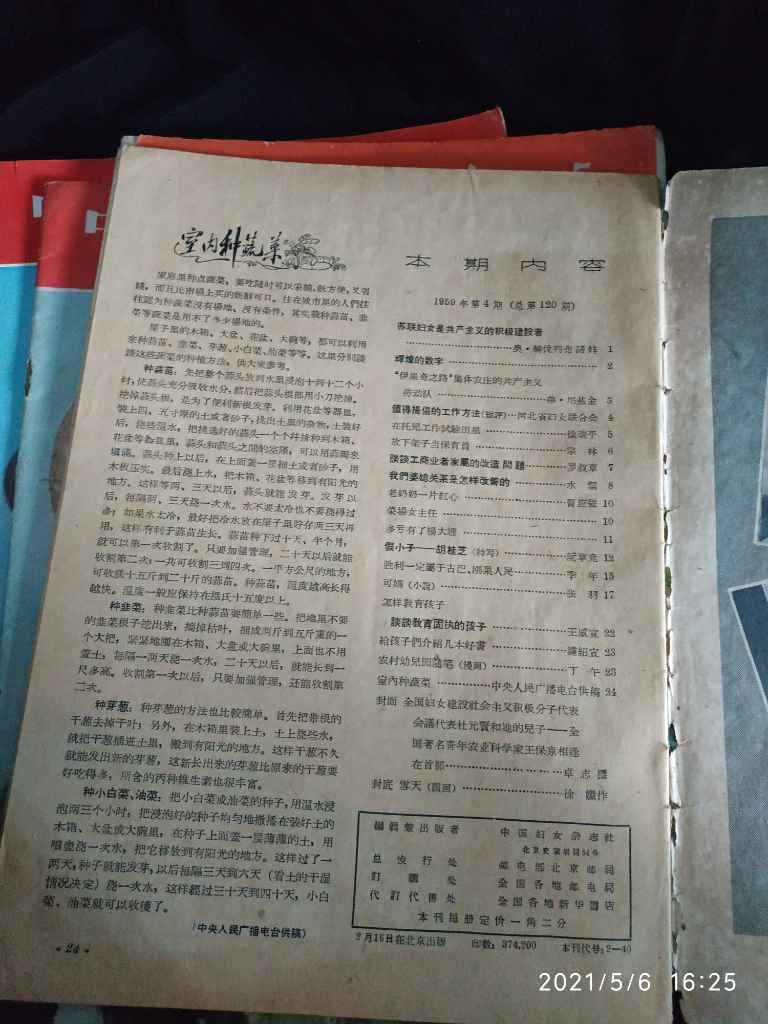 室内种蔬菜
家庭里种点蔬菜，要吃随时可以采摘，既方便，又省
钱，而且比市场上买的新鲜可口。住在城市里的人們往
往認为种蔬菜没有場地、没有条件，其实栽种蒜苗、韭
菜等蔬菜是用不了多少場地的。
屋子里的木箱、大盆、花盆、大碗等，都可以利用
来种蒜苗、韭菜、芽葱、小白菜、油菜等等。这里分别談
談这些蔬菜的种植方法，供大家参考。
种蒜苗：先把整个蒜头放到水里浸泡十到十二个小
时，使蒜头充分吸收水分，然后把蒜头根部用小刀挖掉。
挖掉蒜头根，是为了便利新根发芽。利用花盆等器皿，
装上四、五寸厚的土或者砂子，挑出土里的杂物，土装好
后，浇些温水，把挑选好的蒜头一个个并排种到木箱、
花盆等器皿里，蒜头和蒜头之間的空隙，可以用蒜瓣来
填滿。蒜头种上以后，在上面盖一层細土或者砂子，用
木板压实。最后浇上水，把木箱、花盆等移到有阳光的
地方。这样等两、三天以后，蒜头就能发芽。发芽以
后，每隔两、三天浇一次水。水不要太冷也不要浇得过
多；如果水太冷，最好把冷水放在屋子里貯存两三天再
用，这样有利于蒜苗生长。蒜苗种下过十天、半个月，
就可以第一次收割了。只要加强管理，二十天以后就能
收割第二次；一共可收割三到四次。一平方公尺的地方，
可收获十五斤到二十斤的蒜苗。种蒜苗，温度越高长得
越快。温度一般应保持在摄氏十五度以上。
种韭菜：种韭菜比种蒜苗要簡单一些。把地里不要
的韭菜根子挖出来，摘掉枯叶，捆成两斤到五斤重的一
个大把，紧紧地摆在木箱、大盆或大碗里，上面也不用
盖土；每隔一两天浇一次水，二十天以后，就能长到一
尺多高。收割第一次以后，只要加强管理，还能收割第
二次。
种芽葱：种芽葱的方法也比較簡单。首先把带根的
干葱去掉干叶；另外，在木箱里装上土，土上浇些水，
就把干葱插进土里，搬到有阳光的地方。这样干葱不久
就能发出新的芽葱，这新长出来的芽葱比原来的干葱要
好吃得多，所含的丙种維生素也很丰富。
种小白菜、油菜：把小白菜或油菜的种子，用温水浸
泡两三个小时，把浸泡好的种子均匀地撒播在装好土的
木箱、大盆或大碗里，在种子上面盖一层薄薄的土，用
喷壶浇一次水，把它移放到有阳光的地方。这样过了一
两天，种子就能发芽，以后每隔三天到六天（看土的干湿
情况决定）浇一次水，这样經过三十天到四十天，小白
菜、油菜就可以收获了。
（中央人民广播电台供稿）
·24·
本期内容
1959年第4期（总第120期）
苏联妇女是共产主义的积极建設者
奥·諾 1
輝煌的数字 2
“伊里奇之路”集体农庄的共产主义
劳动队 基金 3
值得提倡的工作方法（短評）…河北省妇女联合会 4
在托儿工作試驗田里 5
放下架子当保育員 宗林 6
談談工商业者家屬的改造問題 罗叔章 7
我們婆媳关系是怎样改善的 8
老奶奶一片紅心 10
荣福女主任 10
多亏有了楊大嫂 11
假小子——胡桂芝（特写） 12
胜利一定屬于古巴、刚果人民 李年 15
可嫡（小説） 17
怎样教育孩子
談談教育固执的孩子 王威宣 22
給孩子們介紹几本好書 紹宣 23
农村幼兒园 （漫画） 丁午 23
室内种蔬菜 中央人民广播电台供稿 24
封面 全国妇女建設社会主义积极分子代表
会議代表杜元賢和她的兒子——全
国著名青年农业科学家王保京相逢
在首都 卓志
封底 雪天（国画） 徐 作
編輯兼出版者 中国妇女杂志社
总发行处 邮电部北京邮局
訂購处 全国各地邮电局
代訂代售处 全国各地新华書店
本刊每册定价一角二分
2月16日在北京出版 印数：374,200 本刊代号：2—40
2021/5/6 16:25